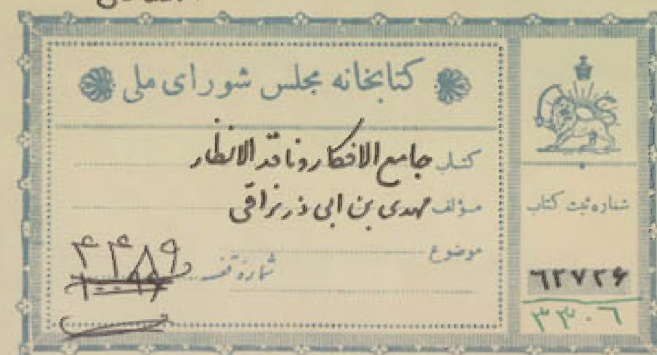 کتابخانه مجلس شورای ملی
کتاب جامع الافکار و ناقد الانظار
مؤلف مهدی بن ابی ذر نراقی
موضوع
شماره قفسه
۴۴۸۹
شماره ثبت کتاب
۶۲۷۲۶
۳۳۰۶